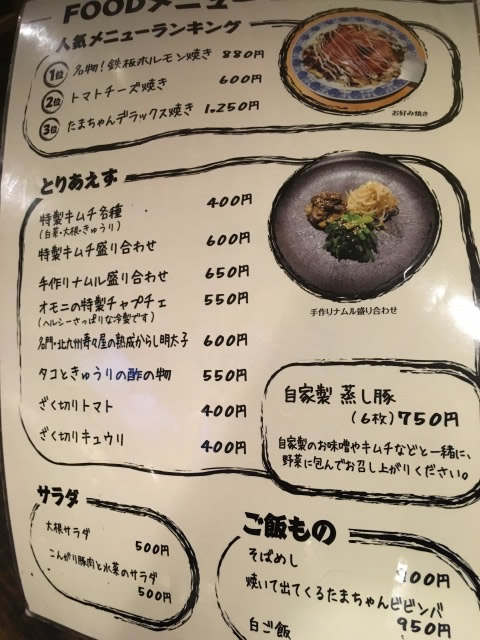 FOODメニュー
人気メニューランキング
1位 名物!鉄板ホルモン焼き 880円
2位 トマトチーズ焼き 600円
3位 たまちゃんデラックス焼き 1,250円
お好み焼き
とりあえず
特製キムチ各種 400円
(白菜・大根・きゅうり)
特製キムチ盛り合わせ 600円
手作りナムル盛り合わせ 650円
オモニの特製チャプチェ 550円
(ヘルシーさっぱりな冷製です)
名門・北九州寿々屋の熟成からし明太子 600円
タコときゅうりの酢の物 550円
ざく切りトマト 400円
ざく切りキュウリ 400円
手作りナムル盛り合わせ
自家製 蒸し豚
(6枚)750円
自家製のお味噌やキムチなどと一緒に、
野菜に包んでお召し上がりください。
サラダ
大根サラダ 500円
こんがり豚肉と水菜のサラダ
500円
ご飯もの
そばめし
00円
焼いて出てくるたまちゃんビビンバ
950円
白ご飯